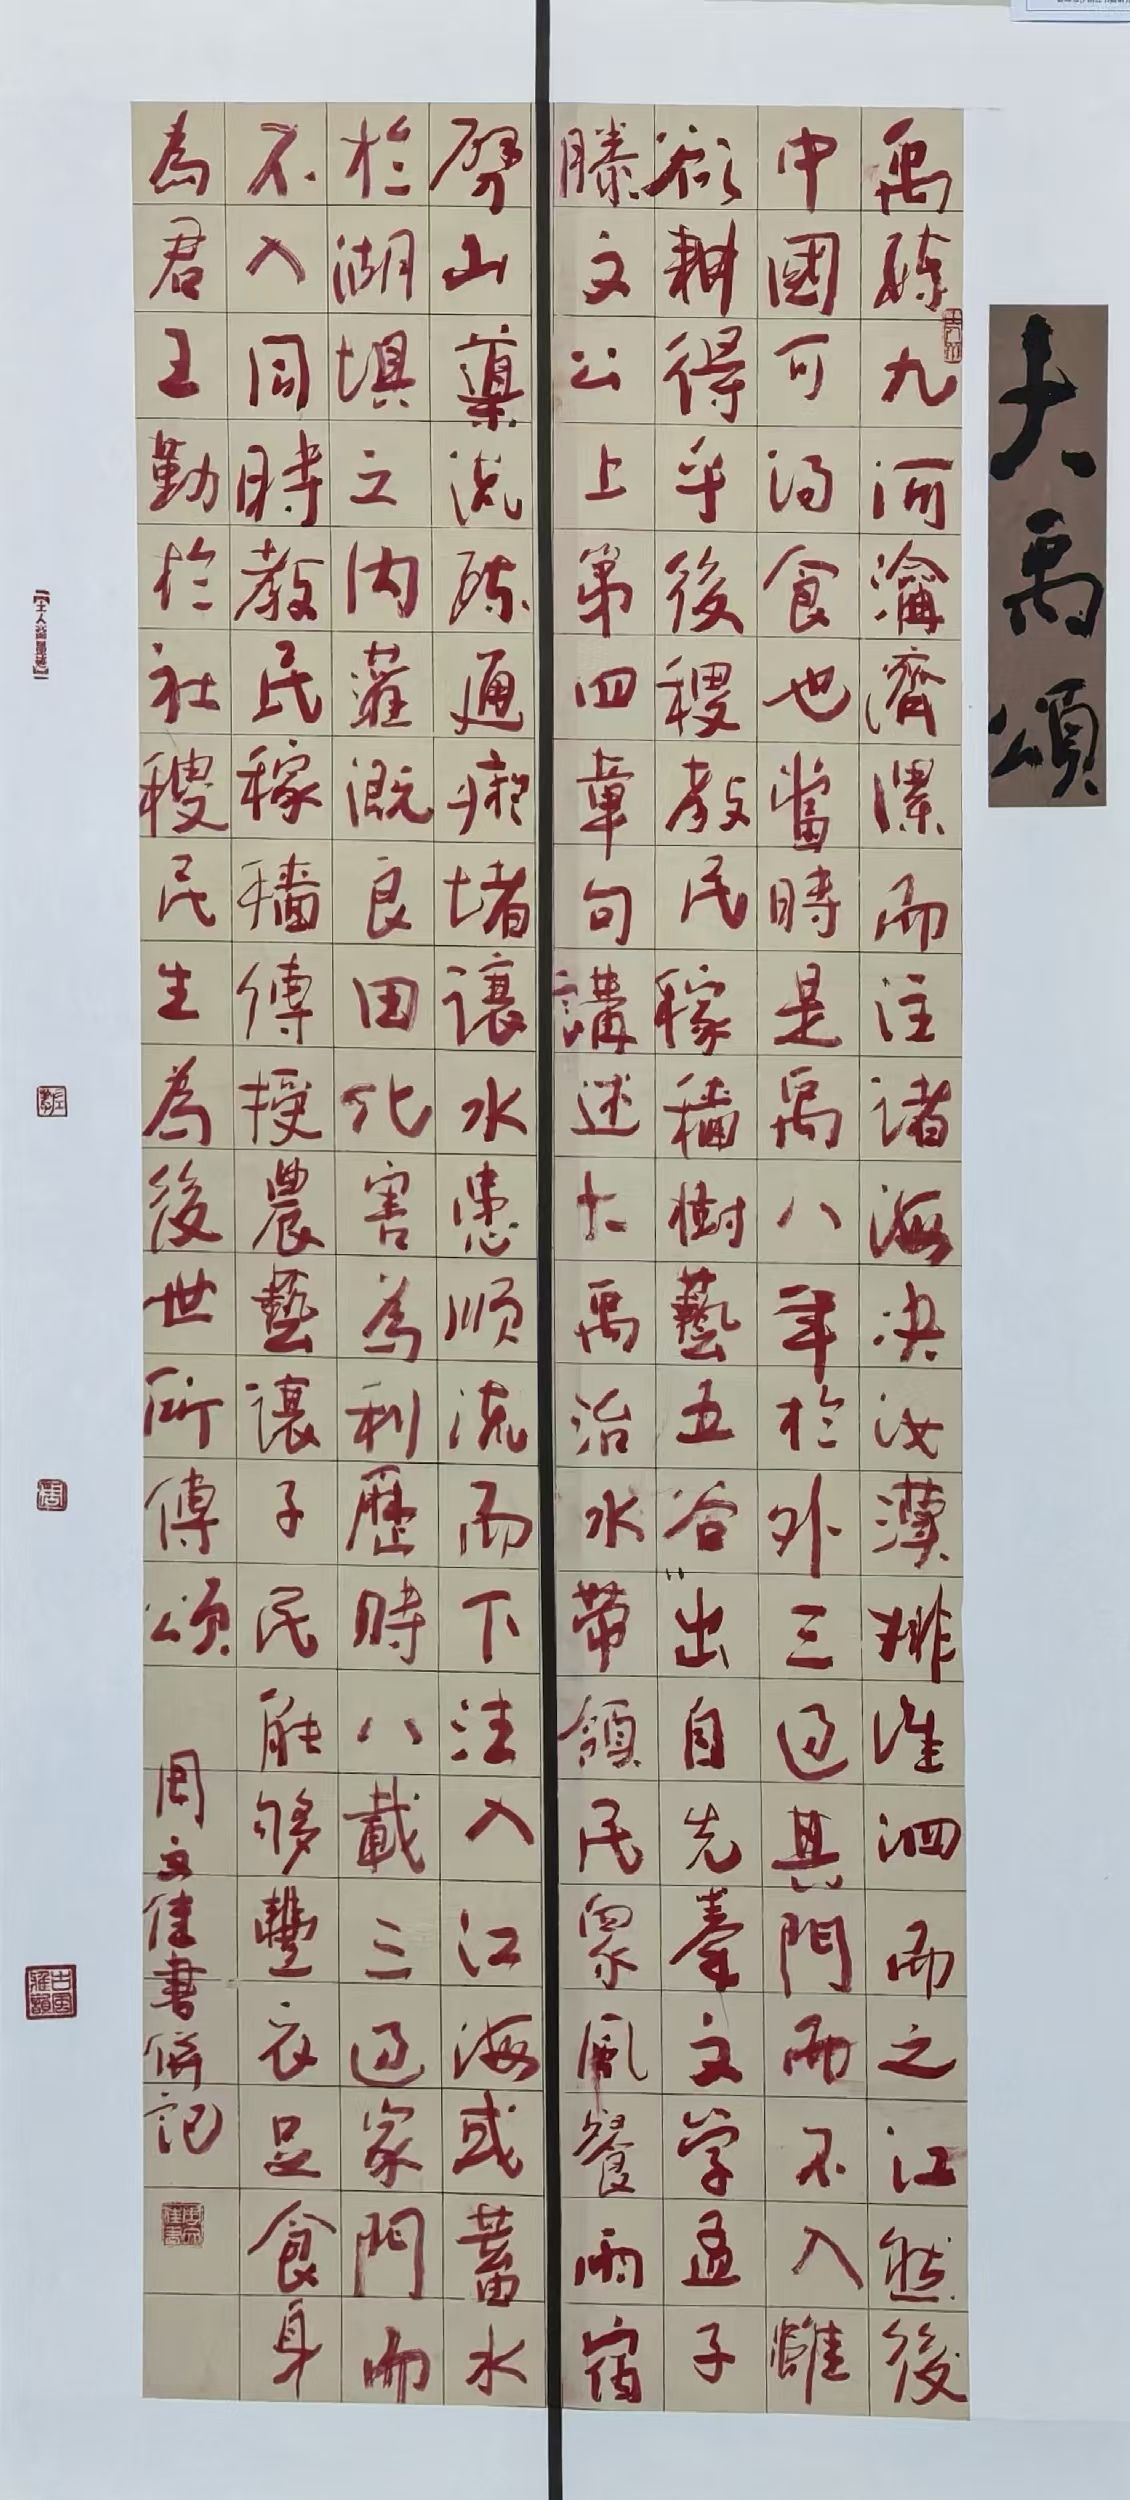 大禹頌
禹疏九河瀹濟漯而注諸海决汝漢排淮泗而之江然後
中國可得食也當時是禹八年於外三过其門而不入雖
欲耕得乎後稷教民稼穡樹藝五谷出自先秦文学孟子
滕文公上第四章句講述大禹治水带領民眾風餐雨宿
劈山鑿流疏通瘀堵讓水患順流而下注入江海或蓄水
於湖惧之内灌溉良田化害為利歷時八載三过家門而
不入同時教民稼穡傳授農藝讓子民能够豐衣足食身
為君王勤於社稷民生為後世所傳頌
周文佳書併記